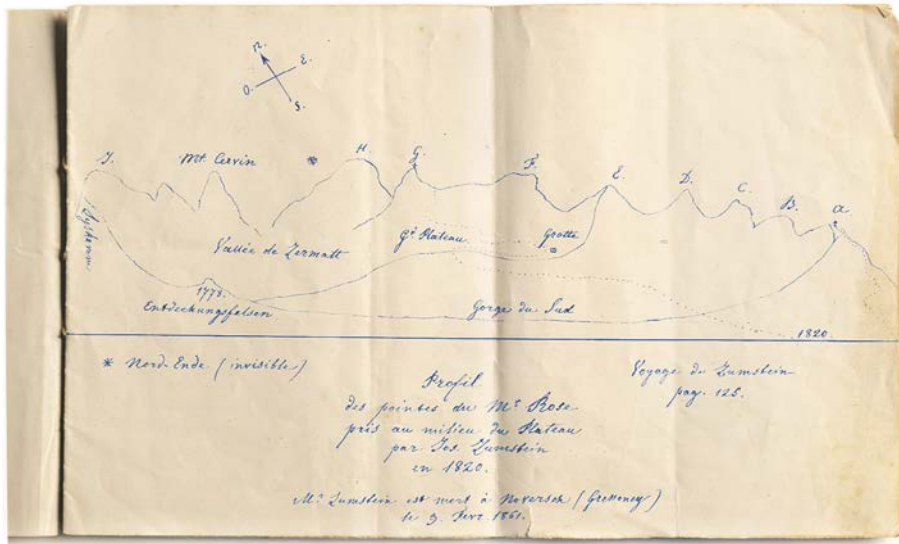 n.
O. E.
S.
J. Mt. Cervin * H. G. F. E. D. C. B. a.
Vallée de Zermatt Gd. Plateau Grotte
1778.
Entdeckungsfelsen Gorge du Sud
1820.
* Nord-Ende (invisible)
Voyage de Zumstein
pag. 125.
Profil
des pointes du Mt. Rose
pris au milieu du Plateau
par Jos. Zumstein
en 1820.
Mr. Zumstein est mort à Noversch (Gressoney)
le 9. Fevr. 1861.